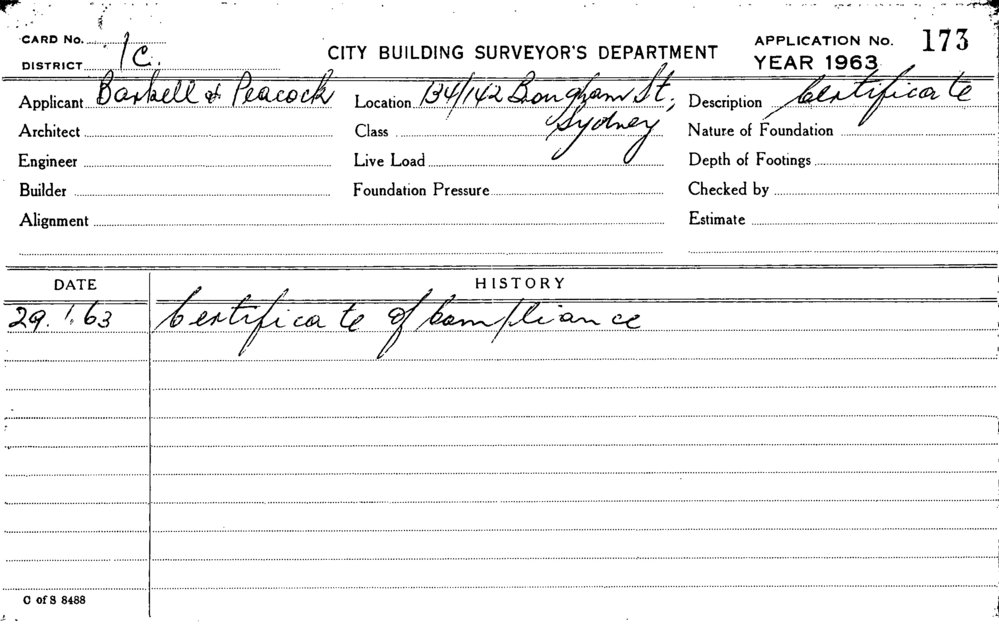 CARD No. 1C. CITY BUILDING SURVEYOR'S DEPARTMENT APPLICATION No. 173
DISTRICT YEAR 1963
Applicant Barkell & Peacock Location 134/142 St, Description Certificate
Architect Class Sydney Nature of Foundation
Engineer Live Load Depth of Footings
Builder Foundation Pressure Checked by
Alignment Estimate
DATE HISTORY
29.1.63 Certificate of Compliance
C of S 8488